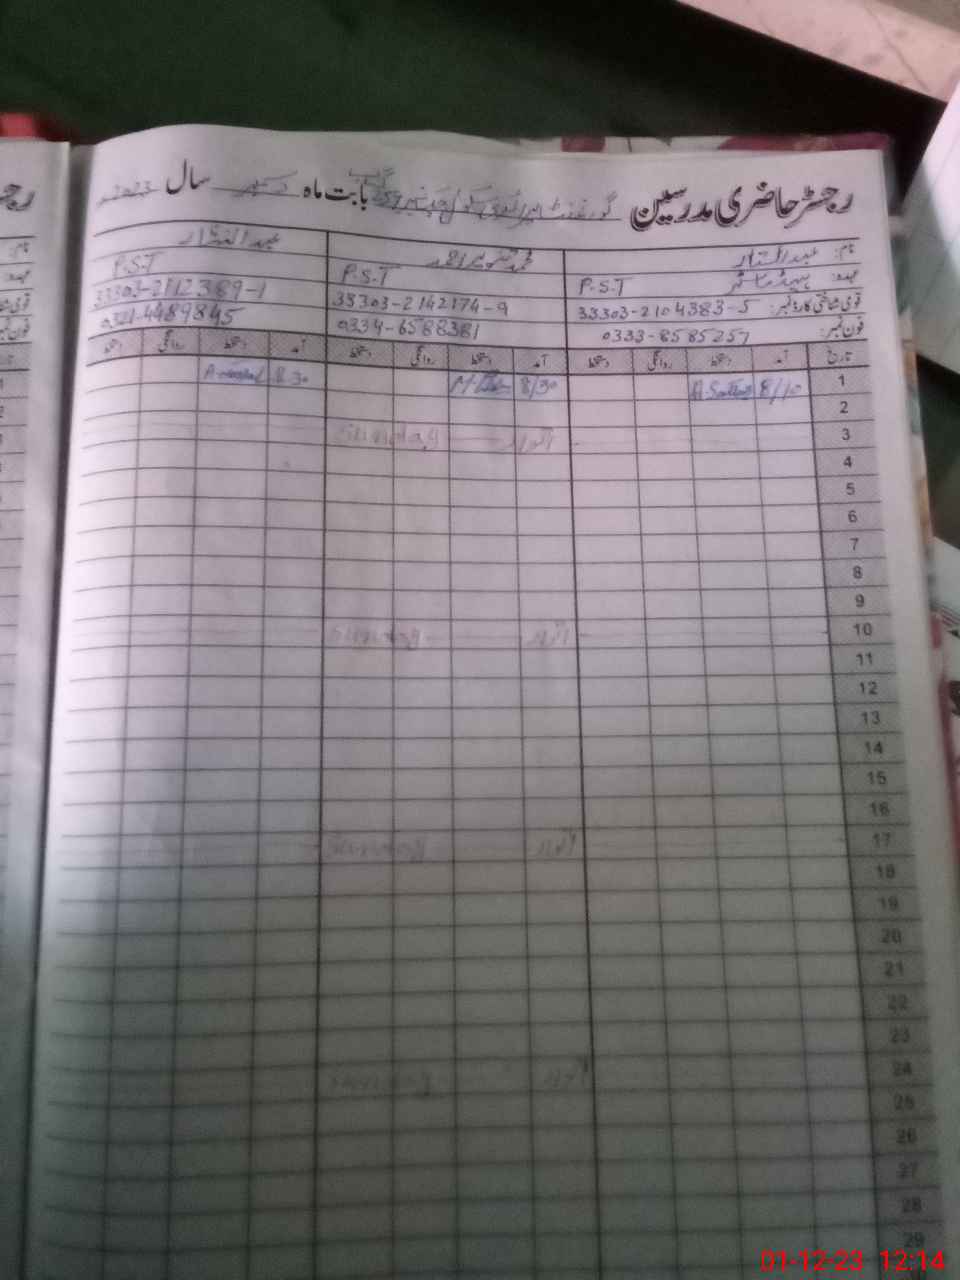 رجسٹر حاضری مدرسین گورنمنٹ پرائمری سکول چک نمبر 57 گ ب بابت ماہ دسمبر سال 2023
نام: عبدالستار محمد تنویر احمد عبدالغفار
عہدہ: ہیڈ ماسٹر P.S.T P.S.T P.S.T
قومی شناختی کارڈ نمبر: 33303-2104383-5 33303-2142174-9 33303-2112389-1
فون نمبر: 0333-8585257 0334-6588381 0321-4489845
تاریخ آمد دستخط روانگی دستخط آمد دستخط روانگی دستخط آمد دستخط روانگی دستخط
1 8/10 A.Sattar 8/30 8 30
2
3 اتوار Sunday
4
5
6
7
8
9
10 اتوار Sunday
11
12
13
14
15
16
17 اتوار Sunday
18
19
20
21
22
23
24 اتوار Sunday
25
26
27
28
29
01-12-23 12:14